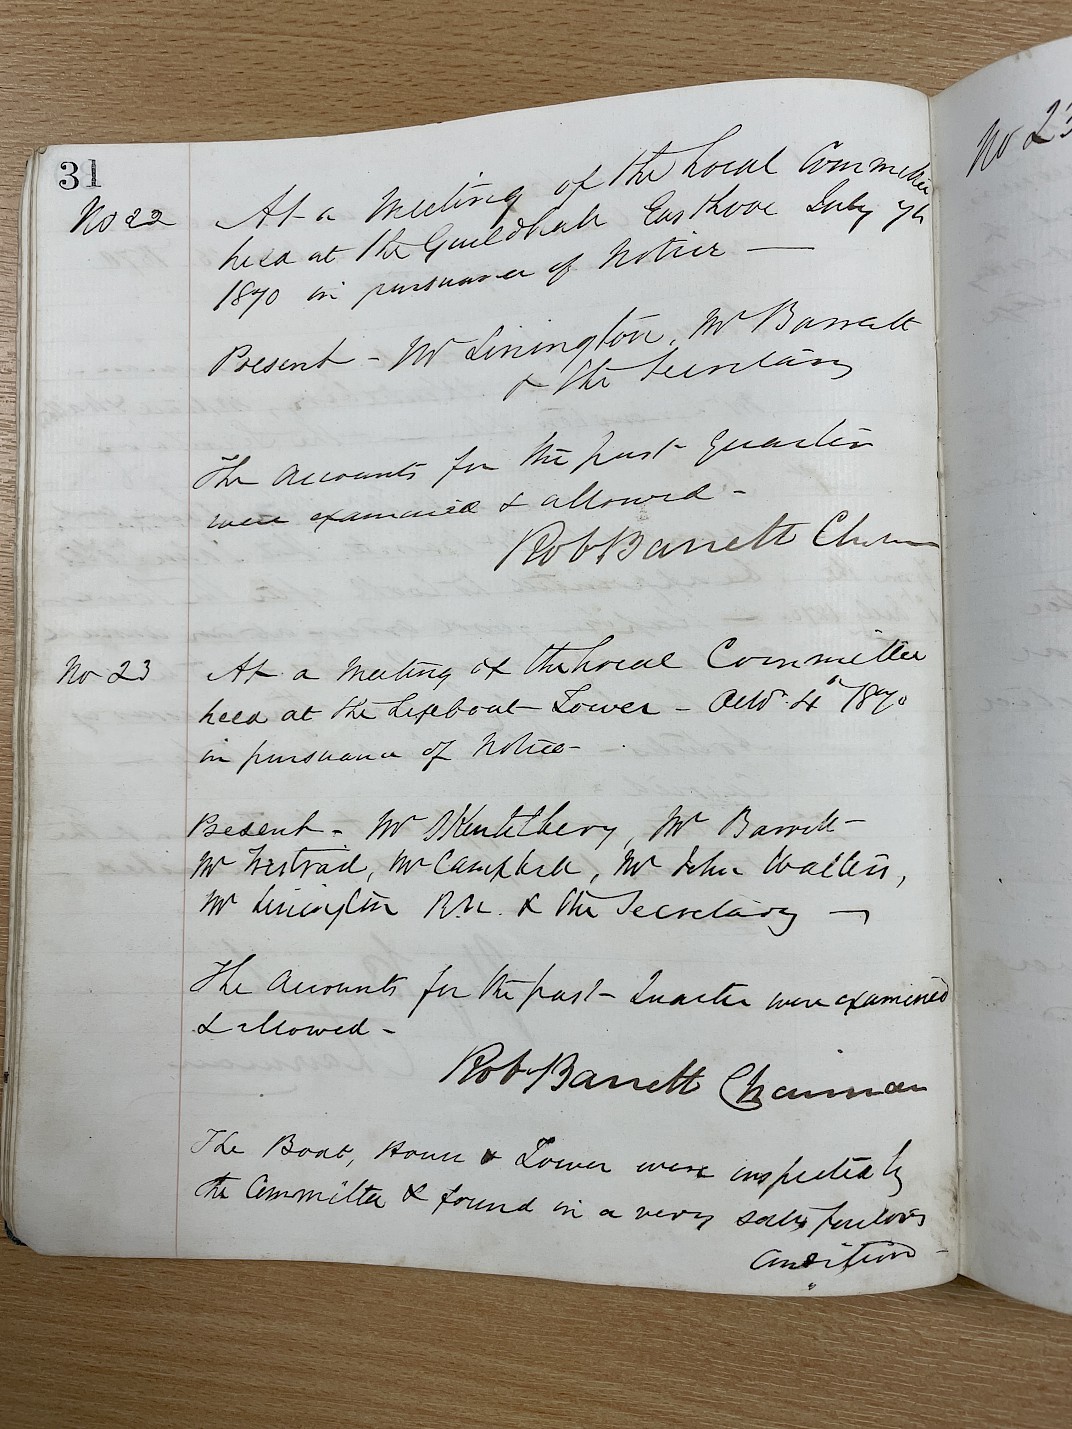 31
No 22
At a Meeting of the Local Committee
held at the Guildhall Eastlooe July 7th
1870 in pursuance of Notice —
Present - Mr Linington, Mr Barratt
& the Secretary
The Accounts for the past quarter
were examined & allowed -
Rob Barrett Chrman
No 23
At a Meeting of the Local Committee
held at the Lifeboat Tower - Octr 4th 1870
in pursuance of Notice -
Present - Mr Barrett
Mr Campbell, Mr John Walters,
Mr Linington R.N. & the Secretary —
The Accounts for the past Quarter were examined
& allowed -
Rob Barrett Chairman
The Boat, House & Tower were inspected by
the Committee & found in a very satisfactory
Condition -
No 23